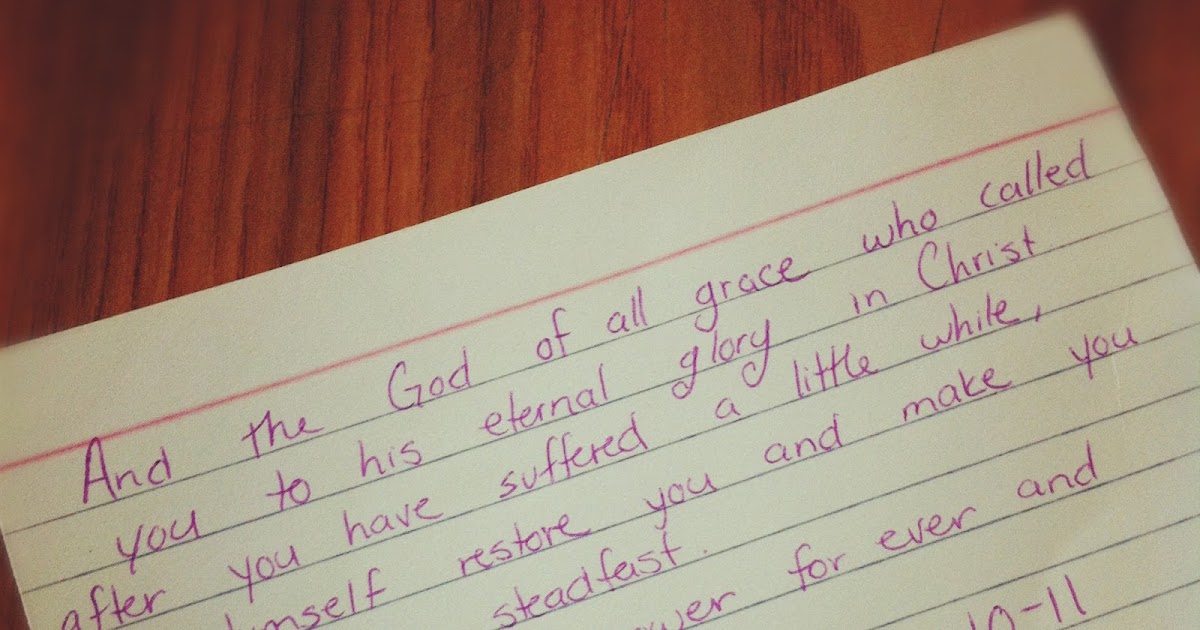 And the God of all grace who called
you to his eternal glory in Christ
after you have suffered a little while,
restore you and make you
steadfast.
for ever and
10-11